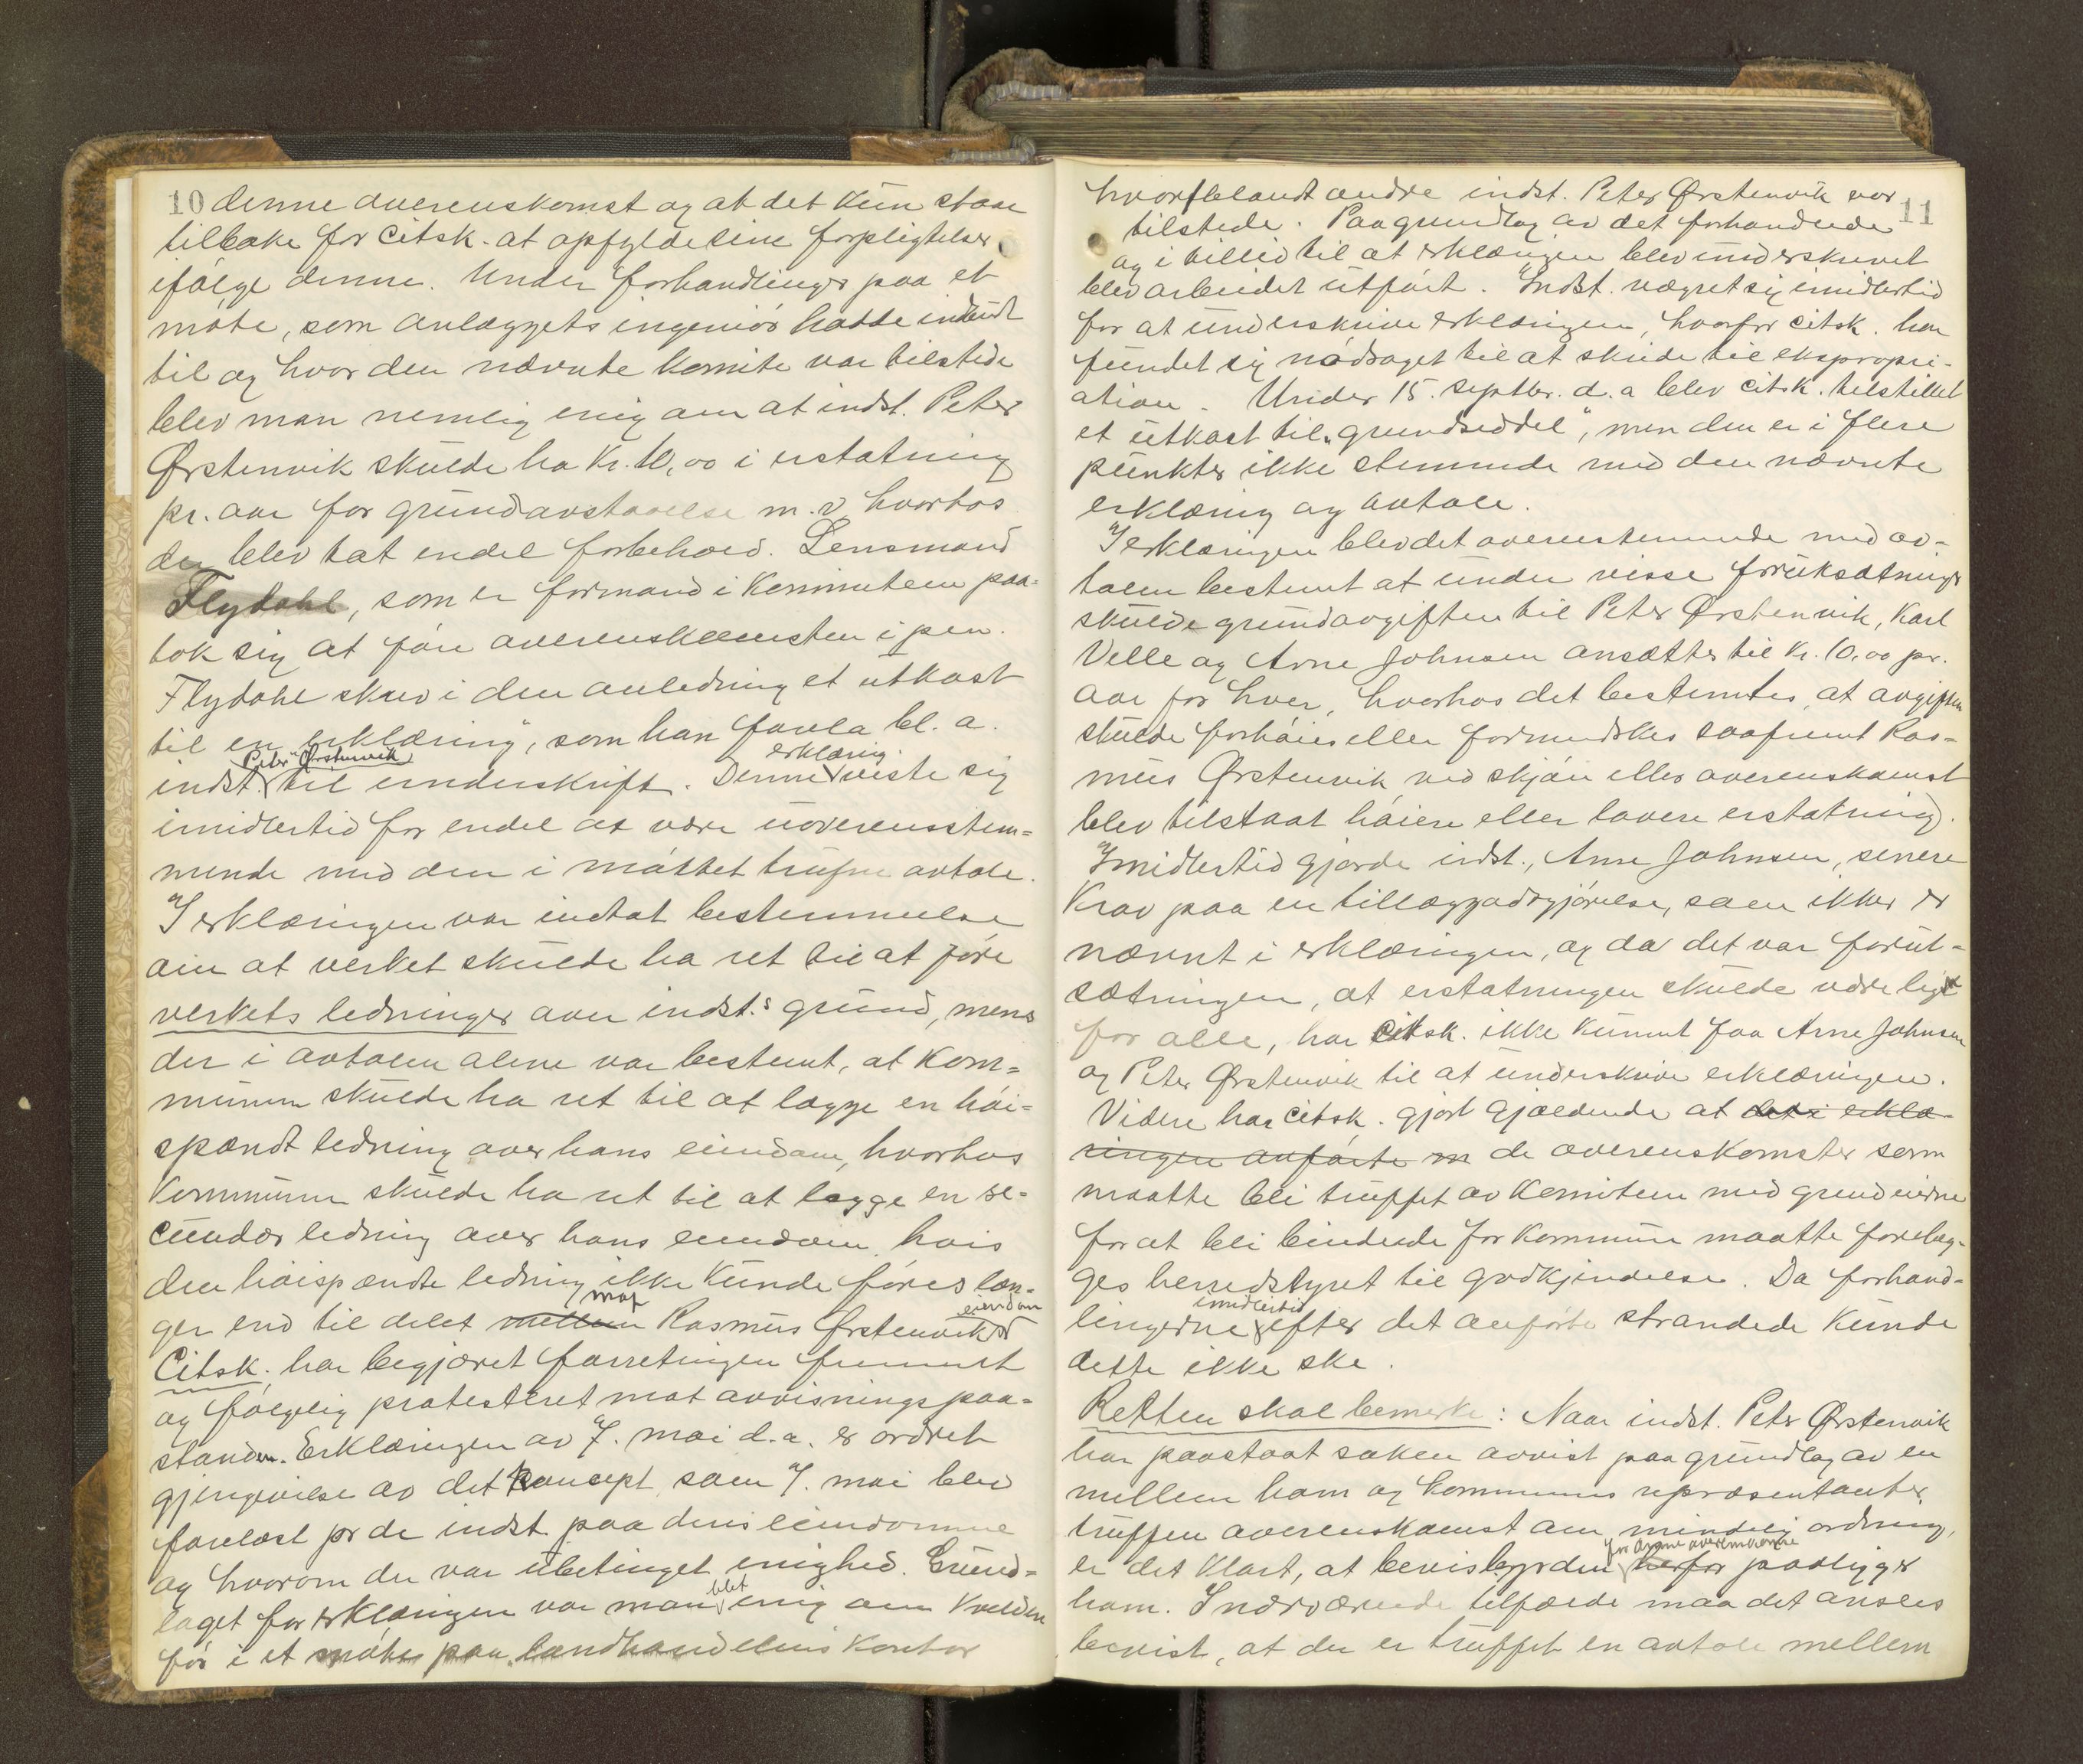 10 denne overenskomst og at det kun staar
tilbake for citsk. at opfylde sine forpligtelser
ifølge denne. Under forhandlinger paa et
møte, som anlæggets ingeniør hadde indbudt
til og hvor den nævnte komite var tilstede
blev man nemlig enig om at indst. Peter
Ørstenvik skulde ha Kr. 10,00 i erstatning
pr. aar for grundavstaaelse m.v. hvorhos
der blev tat endel forbehold. Lensmand
Flydahl, som er formand i Kommiteen paa-
tok sig at føre overenskomsten i pen.
Flydahl skrev i den anledning et utkast
til en "erklæring", som han forela bl. a.
indst. Peter Ørstenvik til underskrift. Denne erklæring viste sig
imidlertid for endel at være uoverensstem-
mende med den i møttet trufne avtale.
I erklæringen var indtat bestemmelse
om at verket skulde ha ret til at føre
verkets ledninger over indst.s grund, mens
der i avtalen alene var bestemt, at Kom-
munen skulde ha ret til at lægge en høi-
spændt ledning over hans eiendom, hvorhos
Kommunen skulde ha ret til at lægge en se-
cundær ledning over hans eiendom, hvis
den høispændte ledning ikke kunde føres læn-
ger end til delet mellem mot Rasmus Ørstenviks eiendom
Citsk. har begjæret forretningen fremmet
og følgelig protesteret mot avvisningspaa-
standen. Erklæringen av 7. mai d.a. er ordret
gjengivelse av det koncept som 7. mai blev
forelæst for de indst. paa deres eiendomme
og hvorom der var ubetinget enighed. Grund-
laget for erklæringen var man blet enig om kvelden
før i et møte paa landhandelens kontor
11
hvor blandt andre indst. Peter Ørstenvik var
tilstede. Paa grundlag av det forhandlede
og i tillid til at erklæringen blev underskrevet
blev arbeidet utført. Indst. vægret sig imidlertid
for at underskrive erklæringen, hvorfor citsk. har
fundet sig nødsaget til at skride til ekspropri-
ation. Under 15. septbr. d.a blev citsk. tilstillet
et utkast til "grundseddel", men den er i flere
punkter ikke stemmende med den nævnte
erklæring og avtale.
I erklæringen blev det overensstemmende med av-
talen bestemt at under visse forutsætninger
skulde grundavgiften til Peter Ørstenvik, Karl
Velle og Arne Johnsen ansættes til Kr. 10,00 pr.
aar for hver, hvorhos det bestemtes, at avgiften
skulde forhøies eller formindskes saafremt Ras-
mus Ørstenvik ved skjøn eller overenskomst
blev tilstaat høiere eller lavere erstatning).
Imidlertid gjorde indst., Arne Johnsen, senere
Krav paa en tillæggsavgjørelse, som ikke er
nævnt i erklæringen, og da det var forut-
sætningen, at erstatningen skulde være lik
for alle, har citsk. ikke kunnet faa Arne Johnsen
og Peter Ørstenvik til at underskrive erklæringen.
Videre har citsk. gjort gjældende at det i erklæ-
ringen anførte m de overenskomster som
maatte bli truffet av Komiteen med grundeierne
for at bli bindende for Kommunen maatte forelæg-
ges herredstyret til godkjendelse. Da forhand-
lingerne imidlertid efter det anførte strandede kunde
dette ikke ske.
Retten skal bemerke: Naar indst. Peter Ørstenvik
har paastaat saken avvist paa grundlag av en
mellem ham og Kommunens repræsentanter
truffen overenskomst om mindelig ordning,
er det klart, at bevisbyrden herfor paaligger
ham. I nærværende tilfælde maa det ansees
bevist, at der er truffet en avtale mellem